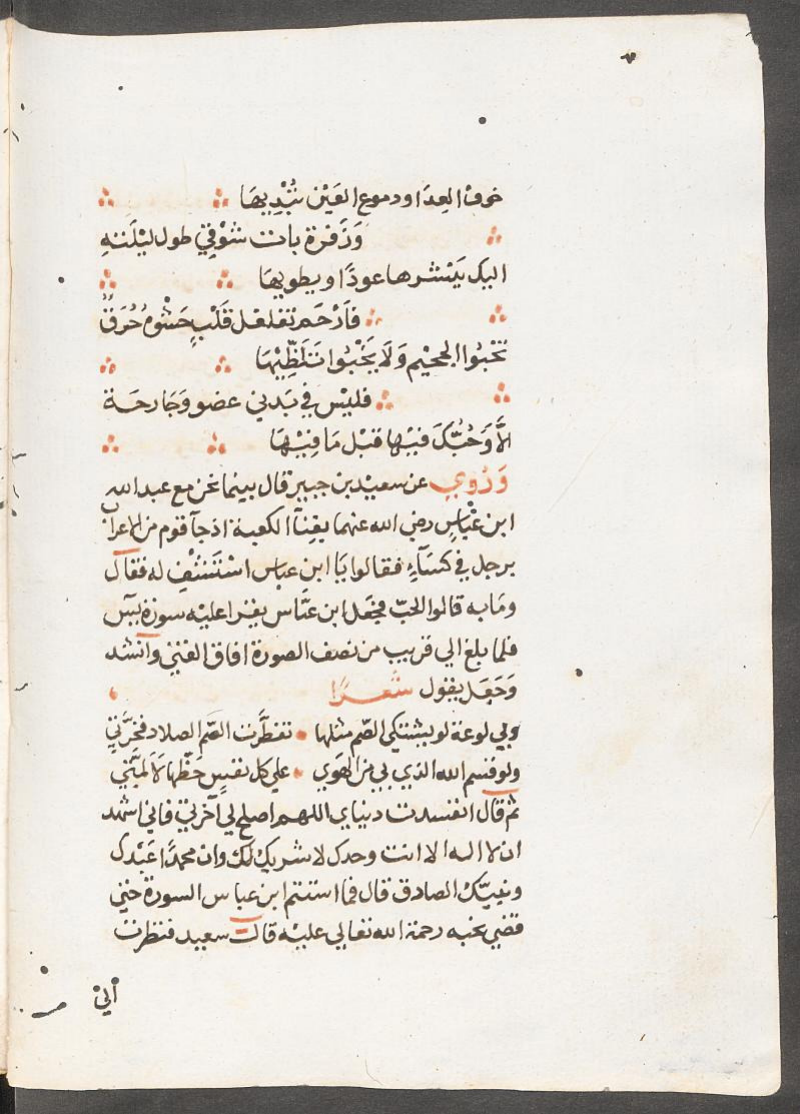 ٧
خوف العِدَا ودموع العَيْن تُبْدِيهَا
وَزَفرة باتت شوقي طول ليْلَتهِ
اليك يَنْشرها عودًا ويطويهَا
فاَرْحَم تقلقل قَلْبٍ حَشْوهُ حُرَقٌ
تخبُوا الجحيْم وَلَا يَخْبُوا تَلَظِّيْهَا
فليْس في بَدني عضو وَجَارحَة
الَّا وَحُبّكَ فيْها قبْل مَا فِيْهَا
وَرُوي عن سعيْد بن جبير قال بينما نحن مع عبد الله
ابن عبَّاسٍ رضي الله عنهما بفِنآ الكعبة اذ جآ قوم من الاعراب
برجل في كسَآءٍ فقالوا يَا ابن عباس اسْتَشْفِ له فقال
ومَا به قالوا الحبّ فجعَل ابن عبَّاس يقرا عليْه سورة يسٓ
فلما بلغ الي قريب من نصف الصورة افاق الفتي وانشد
وَجَعَل يقول شعرًا
وبي لوعة لو يشتكي الصّم مثلها تفطَّرت الصّم الصلاد فخرَّتِ
ولو قسم الله الذي بي من الهَوي علي كل نفسٍ حظّها لَالمَّتِ
ثم قال ان فسدت دنياي اللهم اصلح لي آخرتي فاني اشهد
ان لا اله الا انت وحدك لا شريك لك وان محمدًا عَبْدك
ونبيّك الصادق قال فما استتم ابن عباس السورة حتي
قضي نحبه رحمة الله تعالي عليْه قال سعيد فنظرت
الي